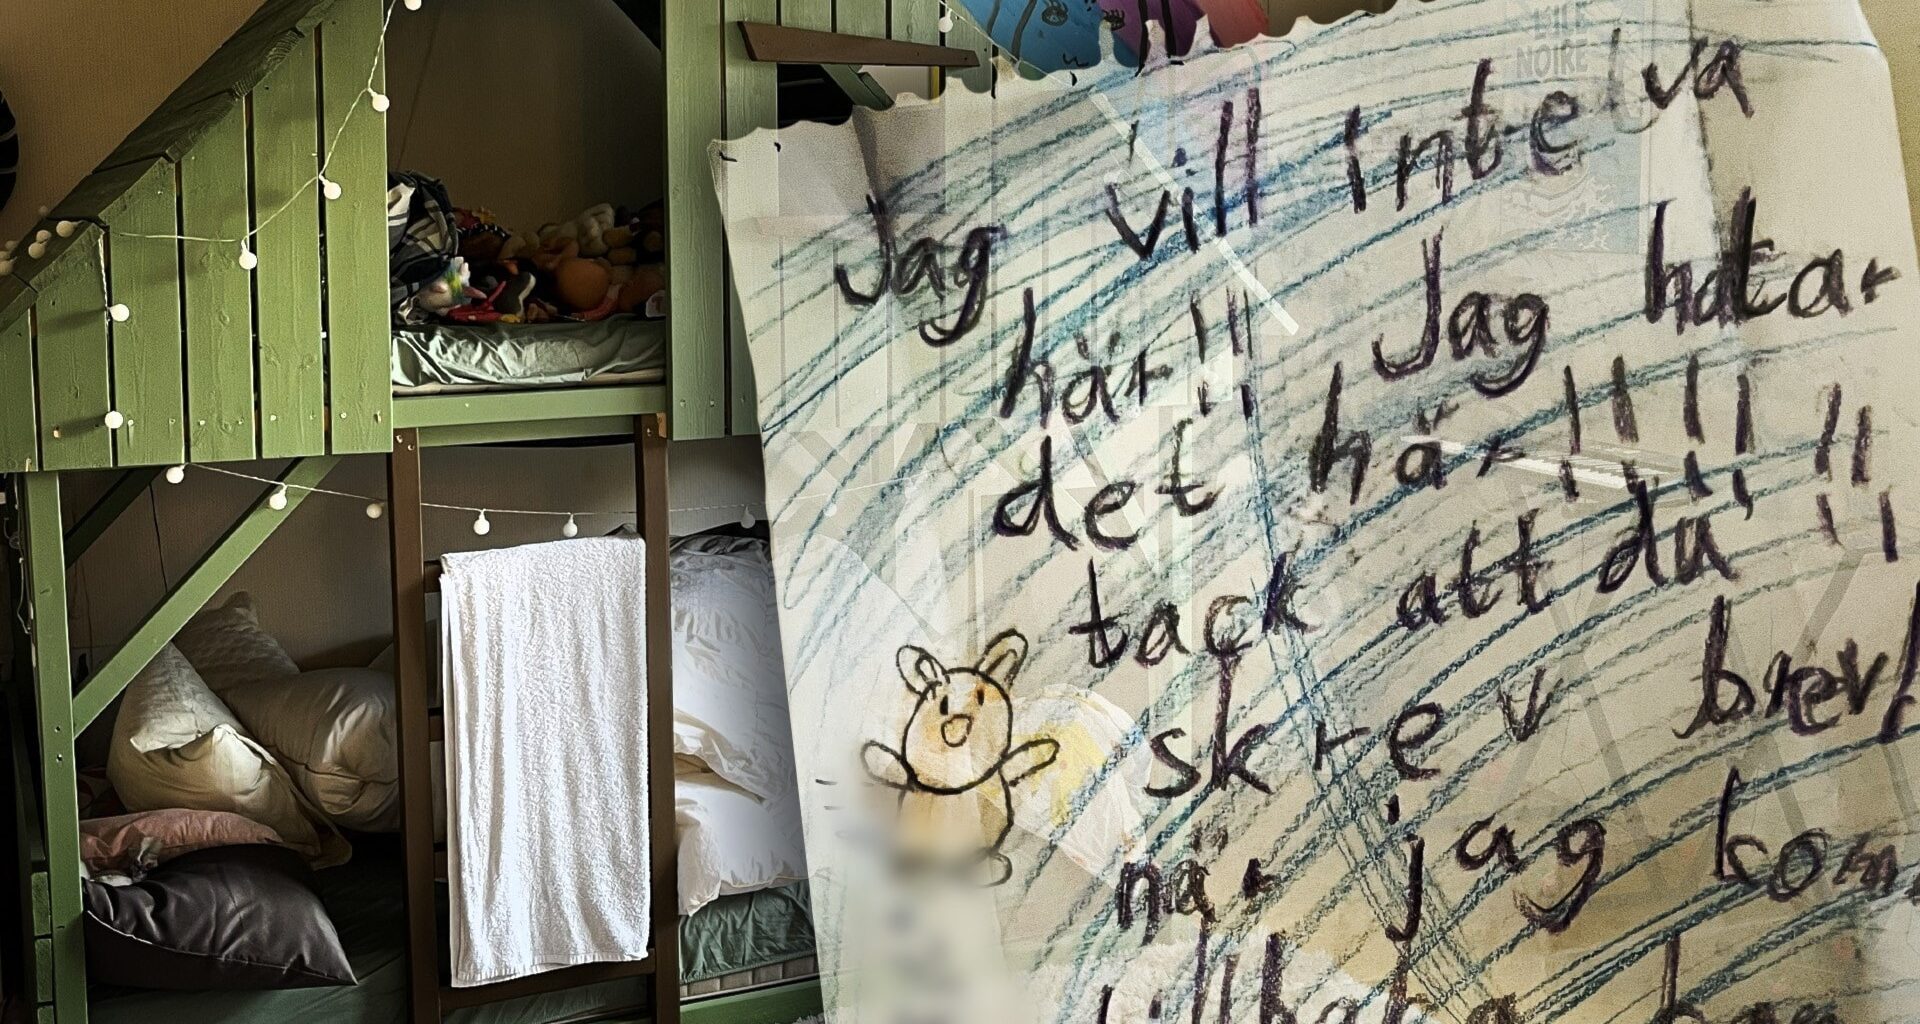 Jag vill inte lva
här!! Jag hatar
det här!!!!!!
tack att du
skrev brev
när jag kom
L'ILE
NOIRE